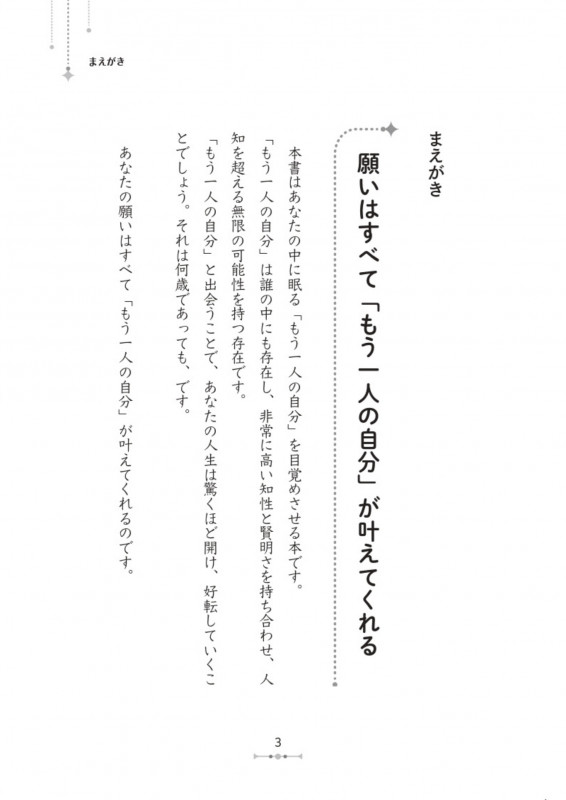 まえがき
まえがき
願いはすべて「もう一人の自分」が叶えてくれる
本書はあなたの中に眠る「もう一人の自分」を目覚めさせる本です。
「もう一人の自分」は誰の中にも存在し、非常に高い知性と賢明さを持ち合わせ、人
知を超える無限の可能性を持つ存在です。
「もう一人の自分」と出会うことで、あなたの人生は驚くほど開け、好転していくこ
とでしょう。それは何歳であっても、です。
あなたの願いはすべて「もう一人の自分」が叶えてくれるのです。
3